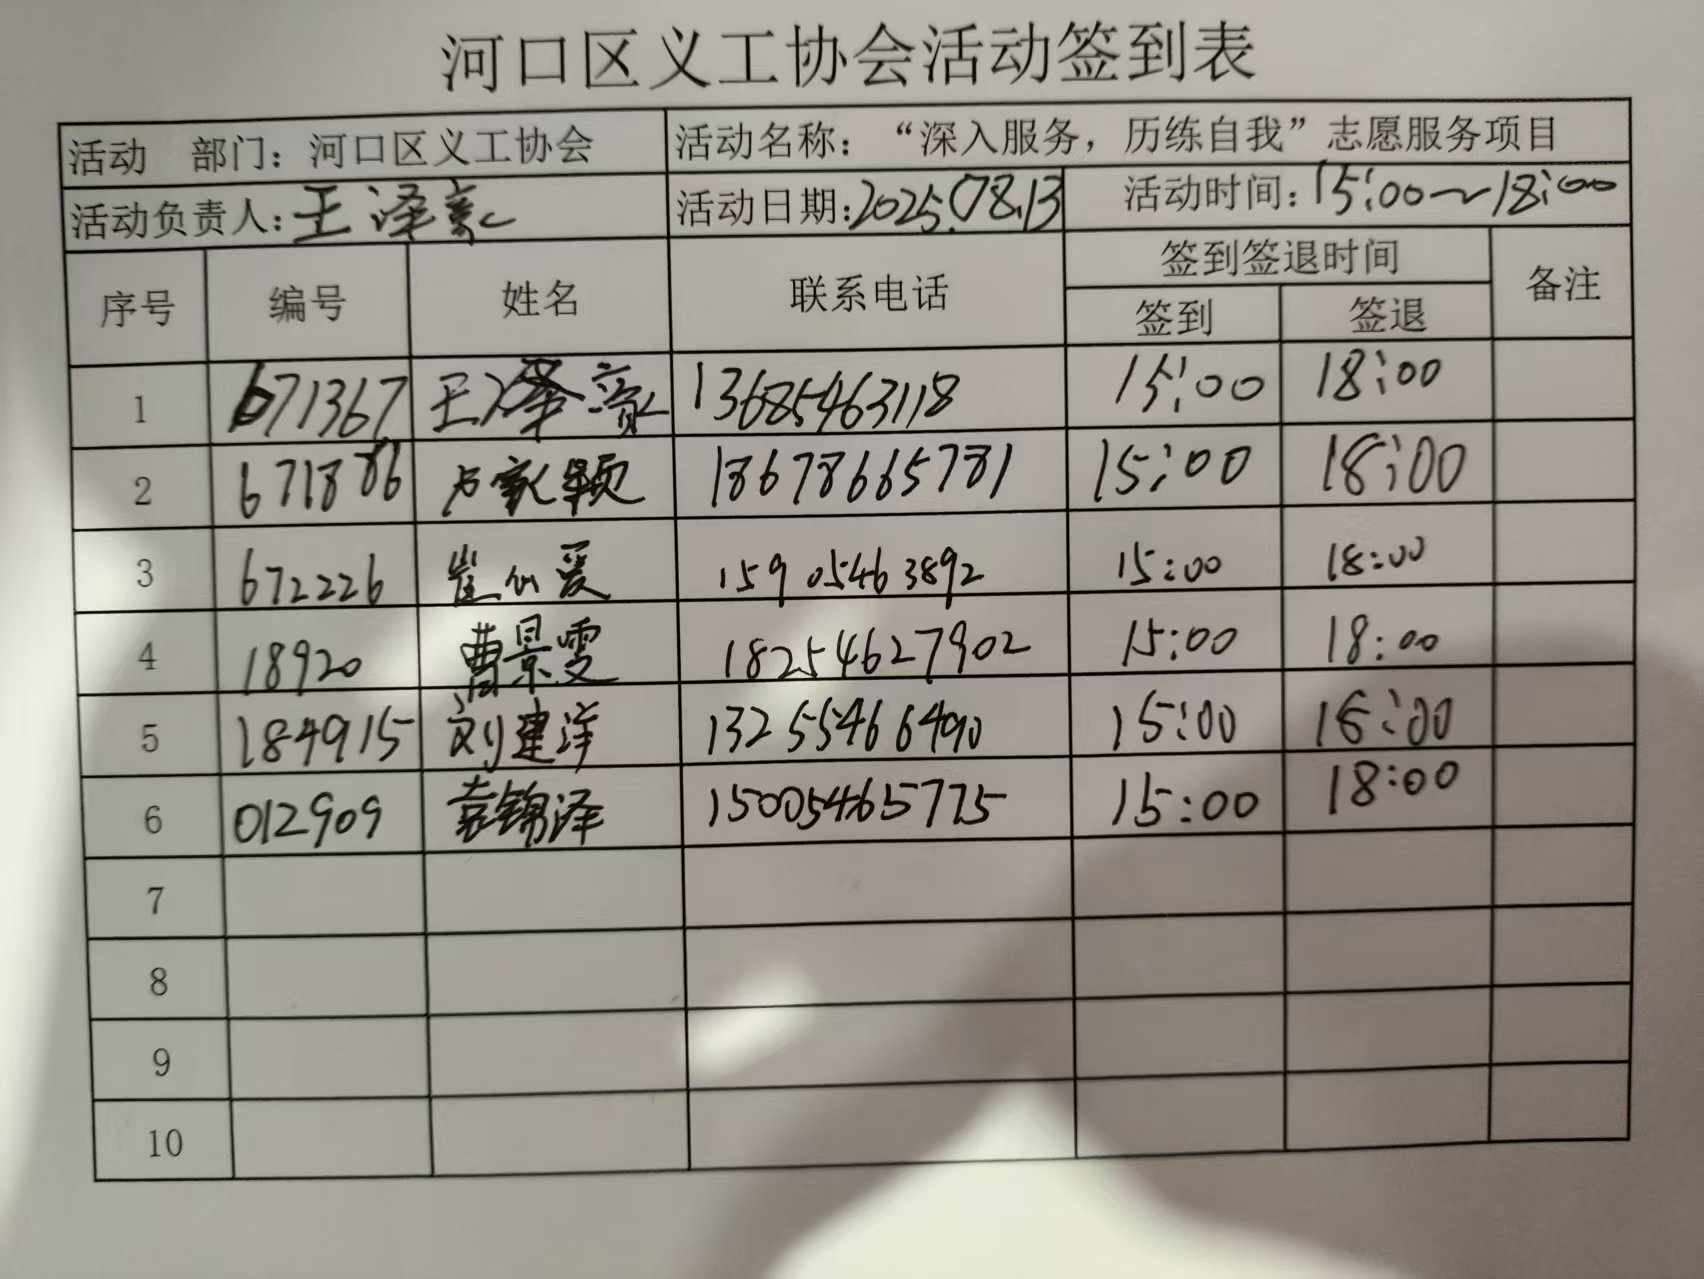 河口区义工协会活动签到表
活动 部门：河口区义工协会 活动名称：“深入服务，历练自我”志愿服务项目
活动负责人：王泽 活动日期：2025.08.13 活动时间：15:00~18:00
序号 编号 姓名 联系电话 签到签退时间 备注
签到 签退
1 671367 王泽 13685463118 15:00 18:00
2 671886 卢家颖 18678665781 15:00 18:00
3 672226 崔心爱 15905463892 15:00 18:00
4 18920 曹景雯 18254627902 15:00 18:00
5 184915 刘建洋 13255466490 15:00 18:00
6 012909 袁锦泽 15005465775 15:00 18:00
7
8
9
10